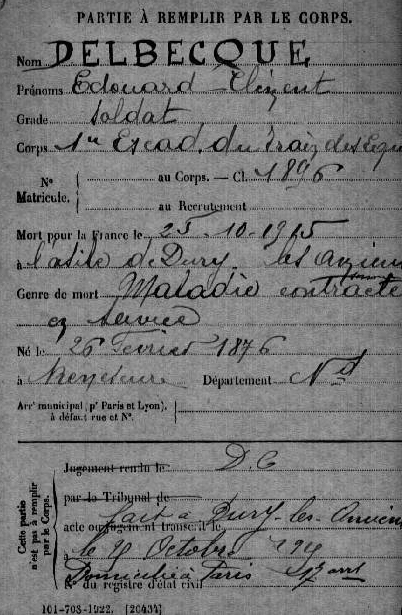 PARTIE À REMPLIR PAR LE CORPS.
Nom DELBECQUE
Prénoms Edouard Clément
Grade Soldat
Corps 1er Escad. du Train des Equi
No Matricule. au Corps. — Cl. 1896
au Recrutement
Mort pour la France le 25-10-1915
à l'asile de Dury les Amiens
Somme
Genre de mort Maladie contracté
en service
Né le 26 Février 1876
à Département Nd
Arrt municipal (pr Paris et Lyon), à défaut rue et No.
Cette partie n'est pas à remplir par le Corps.
Jugement rendu le D.C
par le Tribunal de
fait à Dury-les-Amiens
acte ou jugement transcrit le
à le Octobre
Domicilié à Paris 17 arrt
No du registre d'état civil
101-708-1922. [20434]